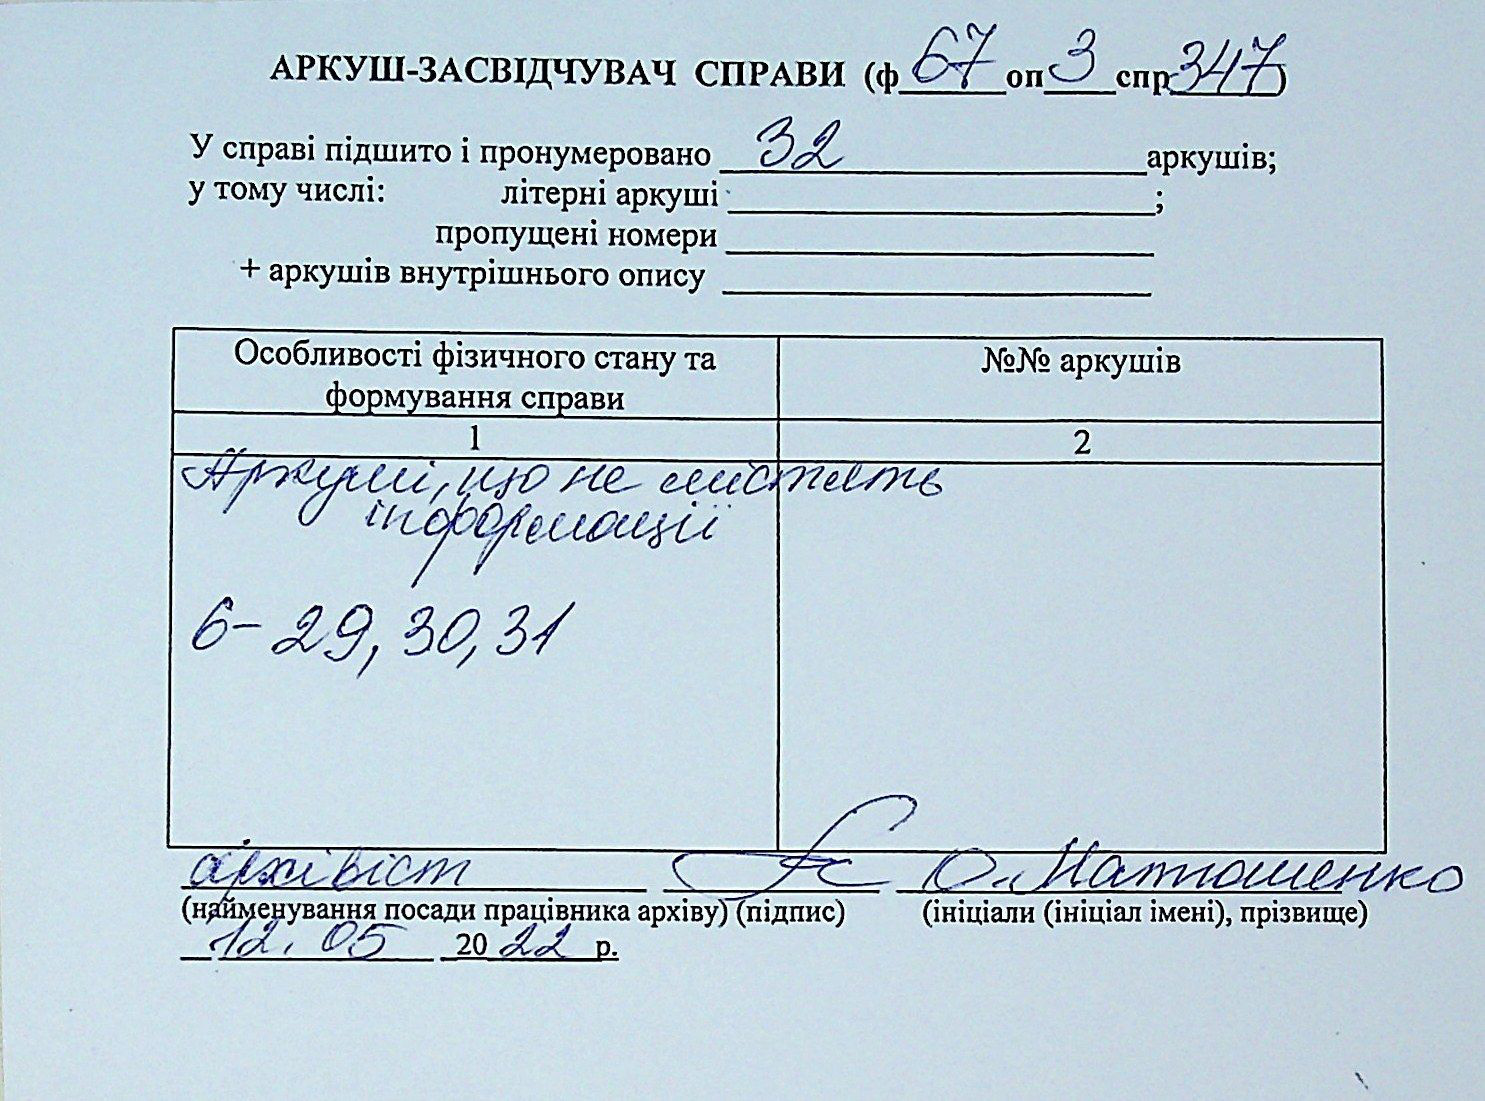 АРКУШ-ЗАСВІДЧУВАЧ СПРАВИ (ф 67 оп 3 спр 347)
У справі підшито і пронумеровано 32 аркушів;
у тому числі: літерні аркуші ;
пропущені номери
+ аркушів внутрішнього опису
Особливості фізичного стану та
формування справи
№№ аркушів
1 2
Аркуші, що не містять
інформації
6-29, 30, 31
архівіст О. Матюшенко
(найменування посади працівника архіву) (підпис) (ініціали (ініціал імені), прізвище)
12. 05 2022 р.